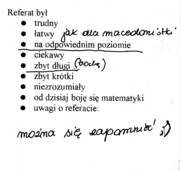 Referat był
• trudny
• łatwy jak dla macedonistki
• na odpowiednim poziomie
• ciekawy
• zbyt długi
• zbyt krótki
• niezrozumiały
• od dzisiaj boję się matematyki
• uwagi o referacie:
można się zapomnieć ;)